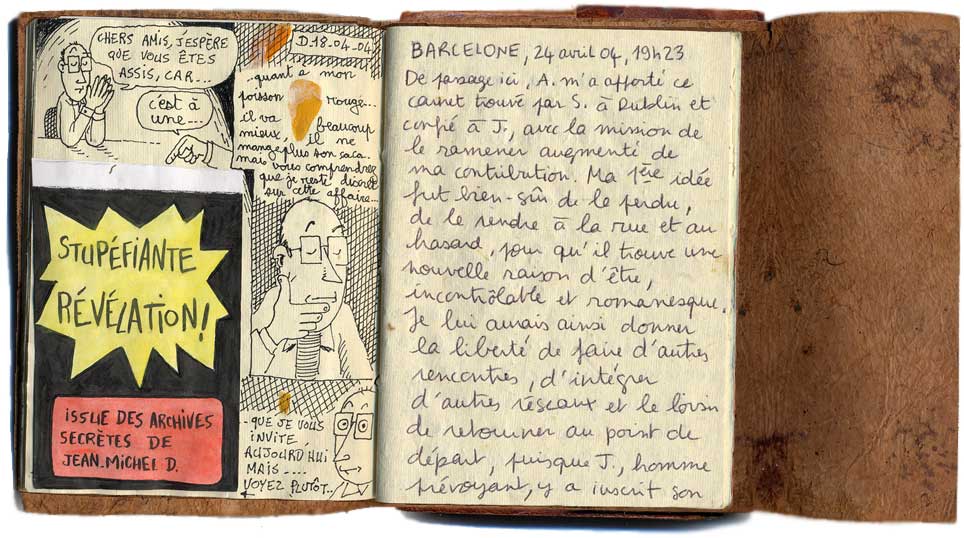 CHERS AMIS, J'ESPÈRE
QUE VOUS ÊTES
ASSIS, CAR...
C'EST À
UNE....
STUPÉFIANTE
RÉVÉLATION!
ISSUE DES ARCHIVES
SECRÈTES DE
JEAN-MICHEL D.
D.18-04-04
...quant à mon
poisson rouge...
il va beaucoup
mieux, il ne
mange plus son caca.
mais vous comprendrez
que je reste discret
sur cette affaire...
...QUE JE VOUS
INVITE
AUJOURD'HUI
MAIS....
VOYEZ PLUTÔT...
BARCELONE, 24 avril 04, 19h23
De passage ici, A. m'a apporté ce
carnet trouvé par S. à Dublin et
confié à J., avec la mission de
le ramener augmenté de
ma contribution. Ma 1ère idée
fut bien-sûr de le perdu,
de le rendre à la rue et au
hasard, pour qu'il trouve une
nouvelle raison d'être,
incontrôlable et romanesque.
Je lui aurais ainsi donner
la liberté de faire d'autres
rencontres, d'intégrer
d'autres réseaux et le loisir
de retourner au point de
départ, puisque J., homme
prévoyant, y a inscrit son